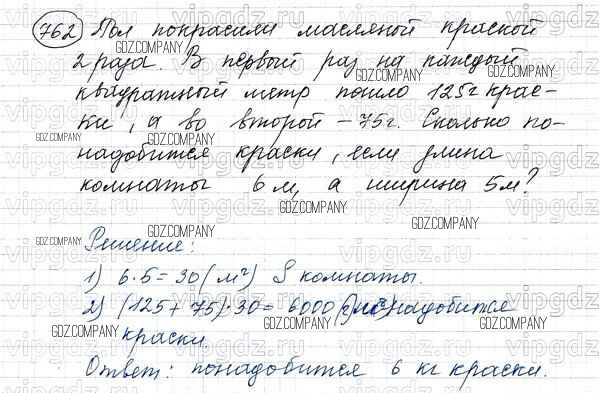 762 Пол покрасили масляной краской
2 раза. В первый раз на каждый
квадратный метр пошло 125г крас-
ки, а во второй - 75г. Сколько по-
надобится краски, если длина
комнаты 6 м, а ширина 5м?
Решение:
1) 6·5=30(м²) S комнаты.
2) (125+75)·30=6000 надобится
краски.
Ответ: понадобится 6 кг краски.